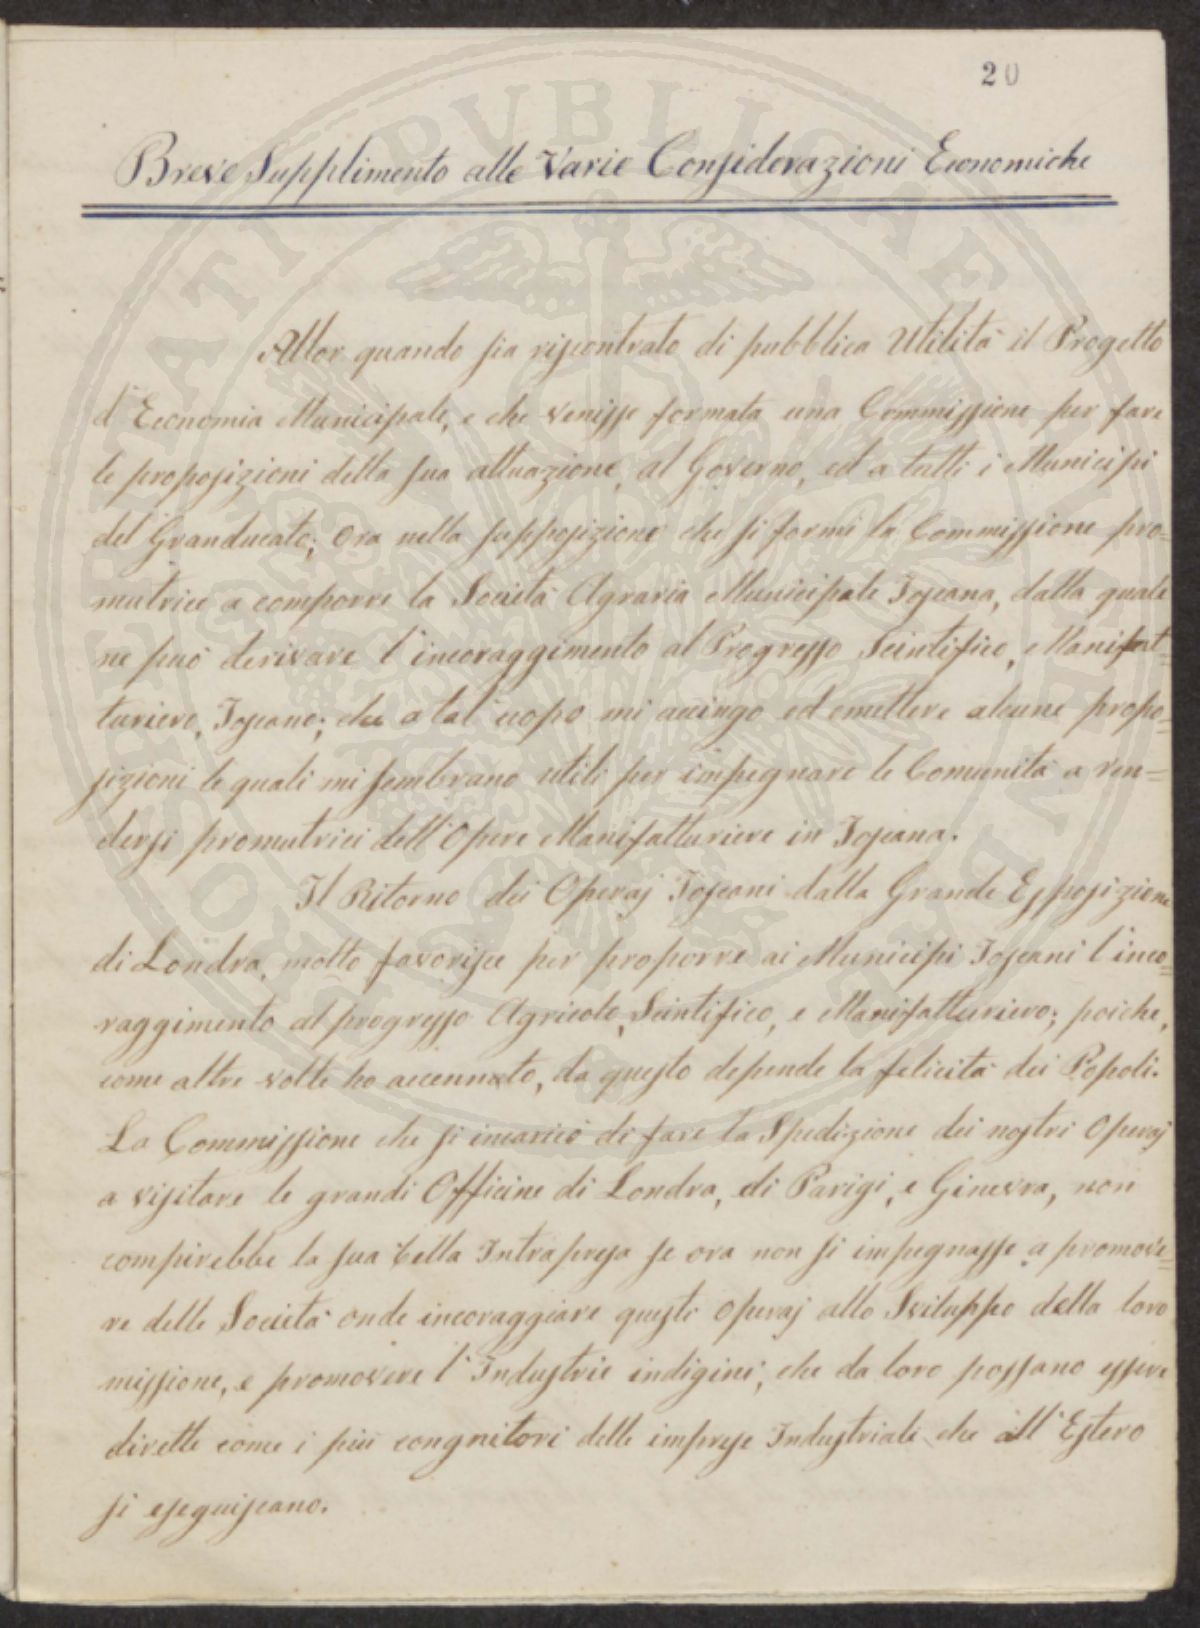 20
Breve Supplimento alle Varie Considerazioni Economiche
Allor quando sia riscontrato di pubblica Utilità il Progetto
d'Economia Municipale, e che venisse formata una Commissione per fare
le proposizioni della sua attuazione, al Governo, ed a tutti i Municipi
del Granducato; Ora nella supposizione che si formi la Commissione pro=
mutrice a comporre la Società Agraria Municipale Toscana, dalla quale
ne può derivare l'incoraggimento al Progresso Scintifico, Manifat=
turiero, Toscano; che a tal'uopo mi accingo ed emettere alcune propo=
sizioni le quali mi sembrano utili per impegnare le Comunità a ren=
dersi promutrici dell'Opere Manifatturiere in Toscana.
Il Ritorno dei Operaj Toscani dalla Grande Esposizione
di Londra, molto favorisce per proporre ai Municipi Toscani l'inco=
raggimento al progresso Agricolo, Scintifico, e Manifatturiero; poiche,
come altre volte ho accennato, da questo depende la felicità dei Popoli.
La Commissione che si incaricò di fare la Spedizione dei nostri Operaj
a visitare le grandi Officine di Londra, di Parigi, e Ginevra, non
compirebbe la sua bella Intrapresa se ora non si impegnasse a promove=
re delle Società onde incoraggiare questi Operaj allo Sviluppo della loro
missione, e promovere l'Industrie indigini, che da loro possano essere
dirette come i più congnitori delle imprese Industriali che all'Estero
si eseguiscano.